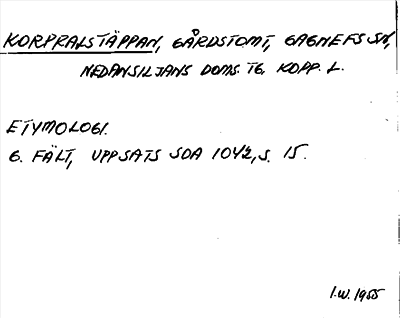 KORPRALSTÄPPAN, GÅRDSTOMT, GAGNEFS SN,
NEDANSILJANS DOMS. TG. KOPP. L.
ETYMOLOGI.
G. FÄLT, UPPSATS SOA 1042, S. 15.
I.W. 1955